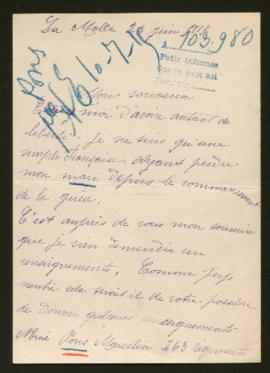 La Molle 2 juin
A 103.980
Pedir informes
Pons
Bon souverain
moi d'avoir autant de
liberté. je ne suis qu'une
simple Française ayant perdu
mon mari depuis le commencement
de la guerre.
C'est auprès de vous mon souverain
que je vien demander un
renseignements. Comme pays
neutre cela serait il de votre possible
de donner quelques renseignements
Mari Pons Marcelin 363 régiments